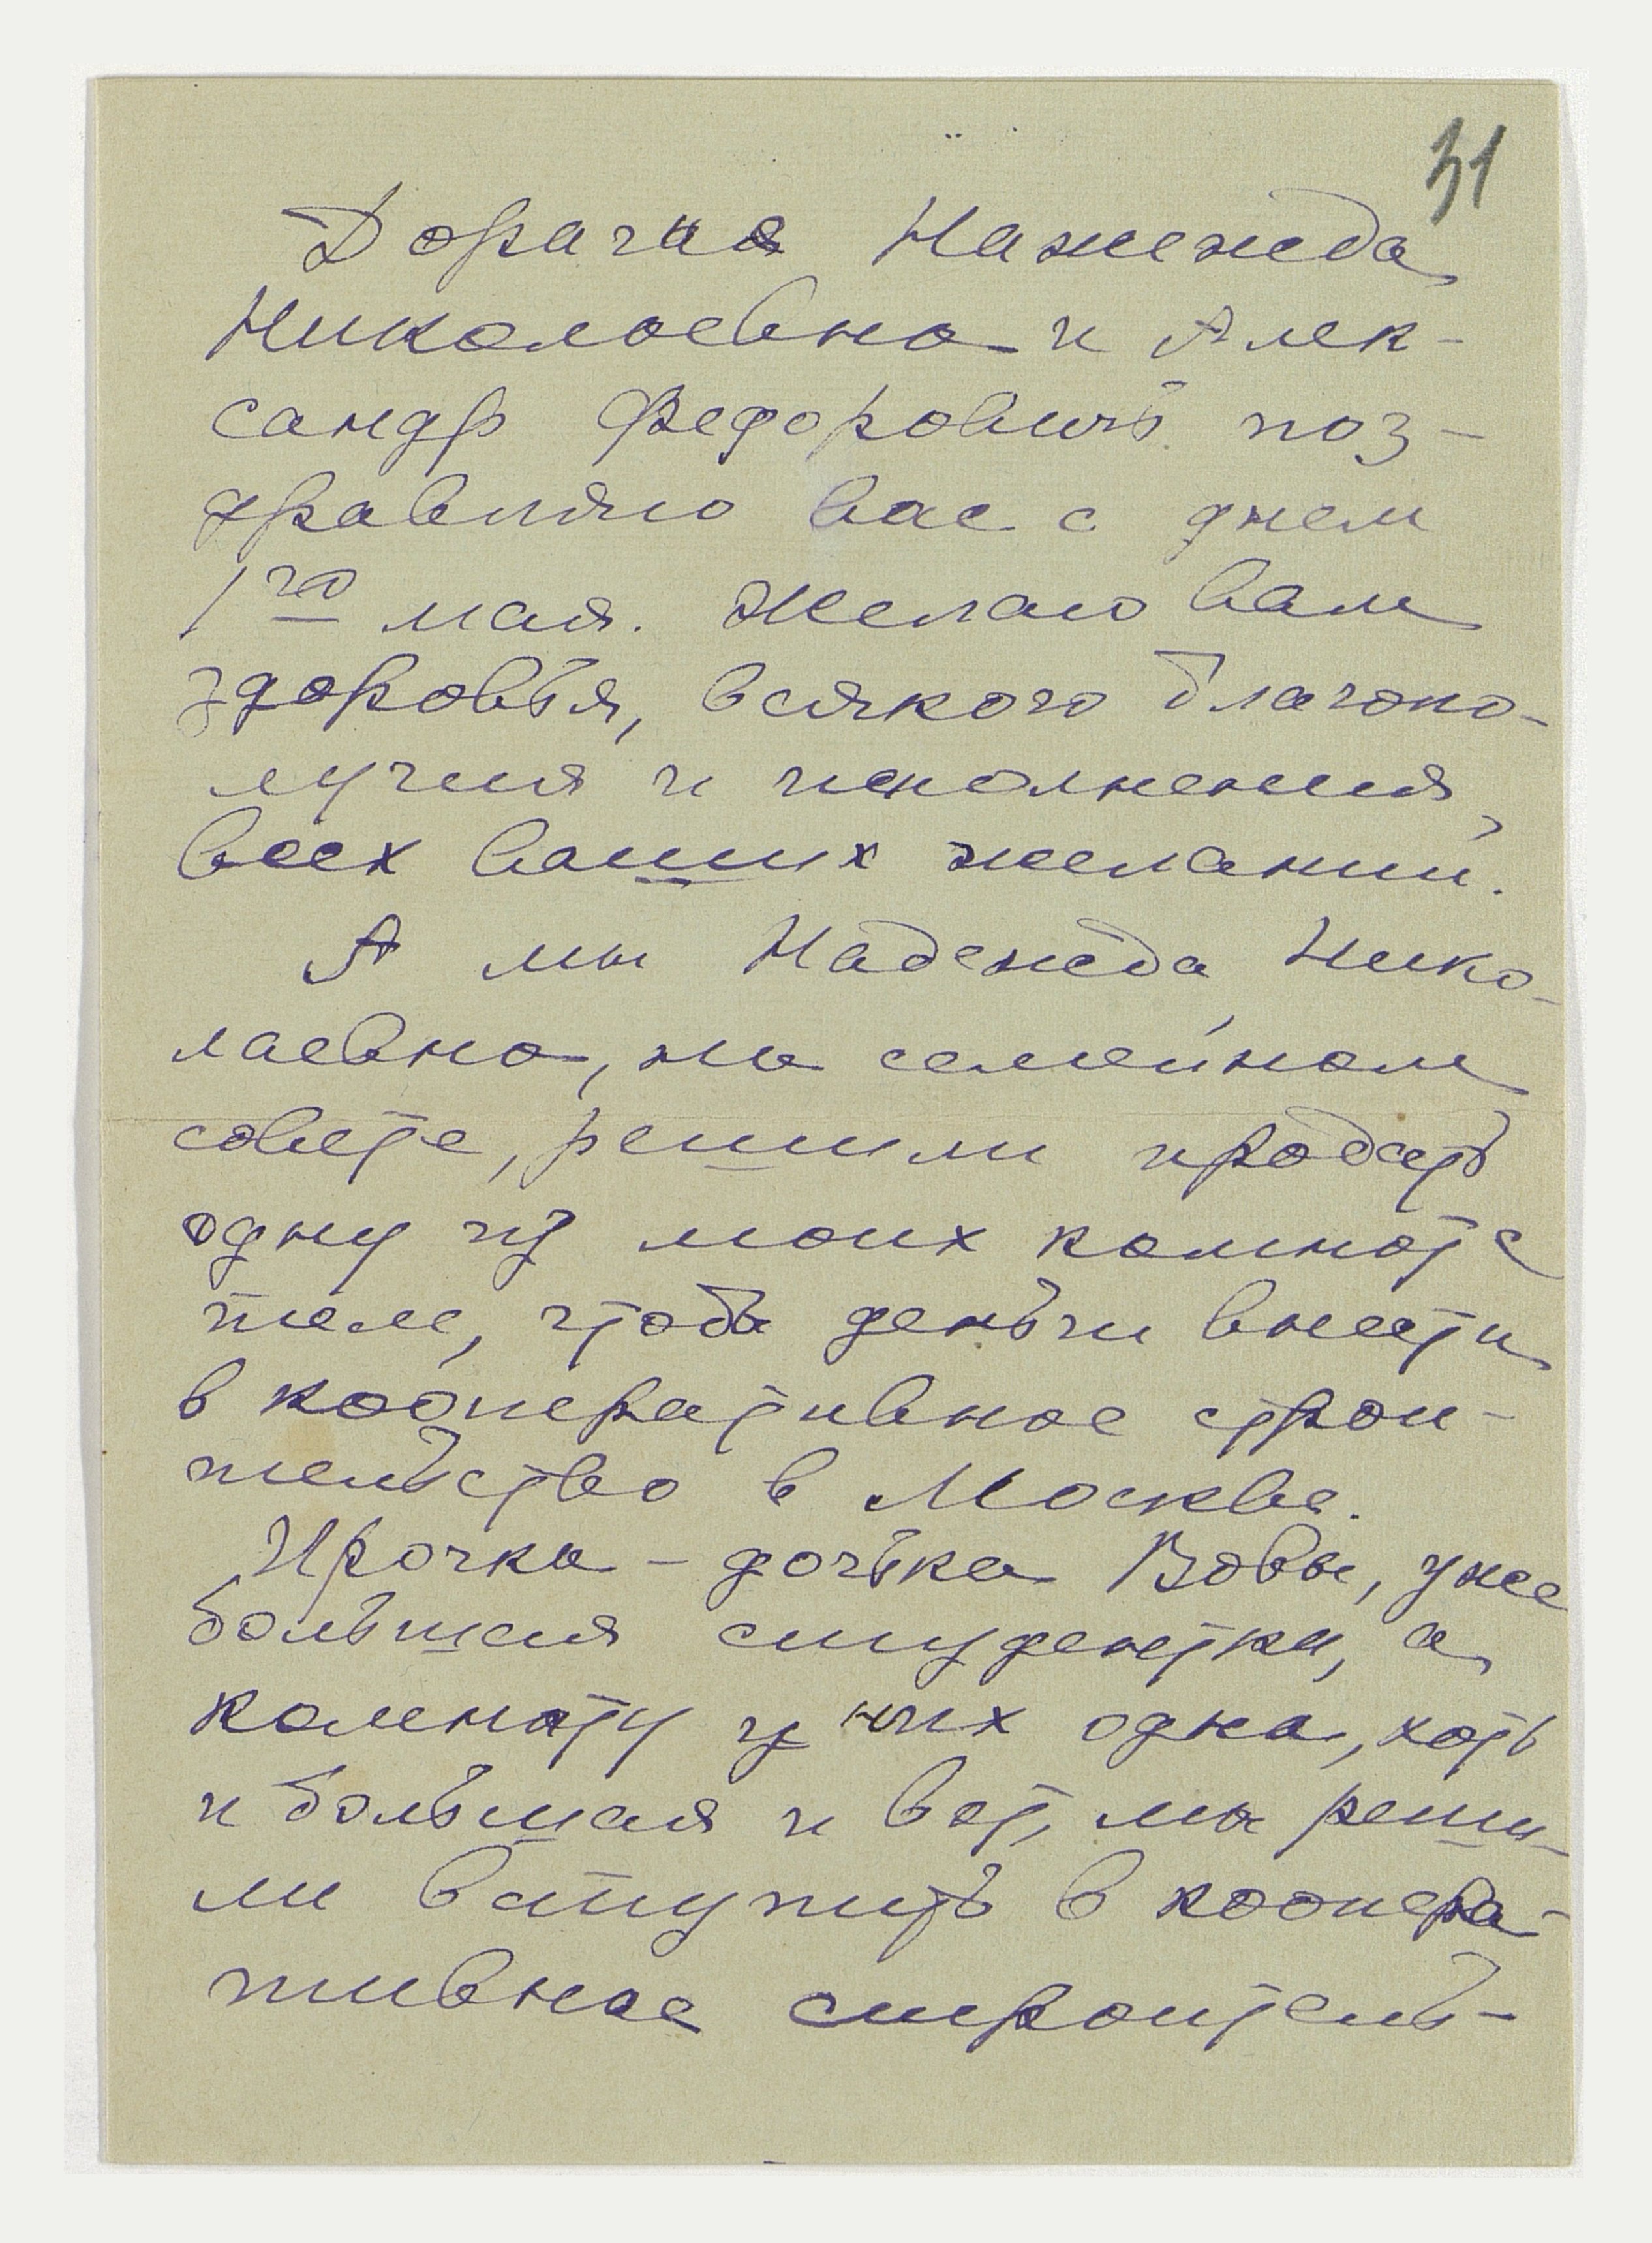 31
Дорагия Нажежда
Николаевна и Алек-
сандр Федоровичь поз-
дравляю вас с днем
1го мая. Желаю вам
здоровья, всякого благопо-
лучия и исполнения,
всех ваших желаний.
А мы Надежда Нико-
лаевна, на семейном
совете, решили продать
одну из моих комнат с
тем, чтобы деньги внести
в кооперативное строи-
тельство в Москве.
Ирочка - дочька Вовы, уже
большая студентка, а
комнату у них одна, хоть
и большая и вот, мы реши-
ли вступить в коопера-
тивное строитель-